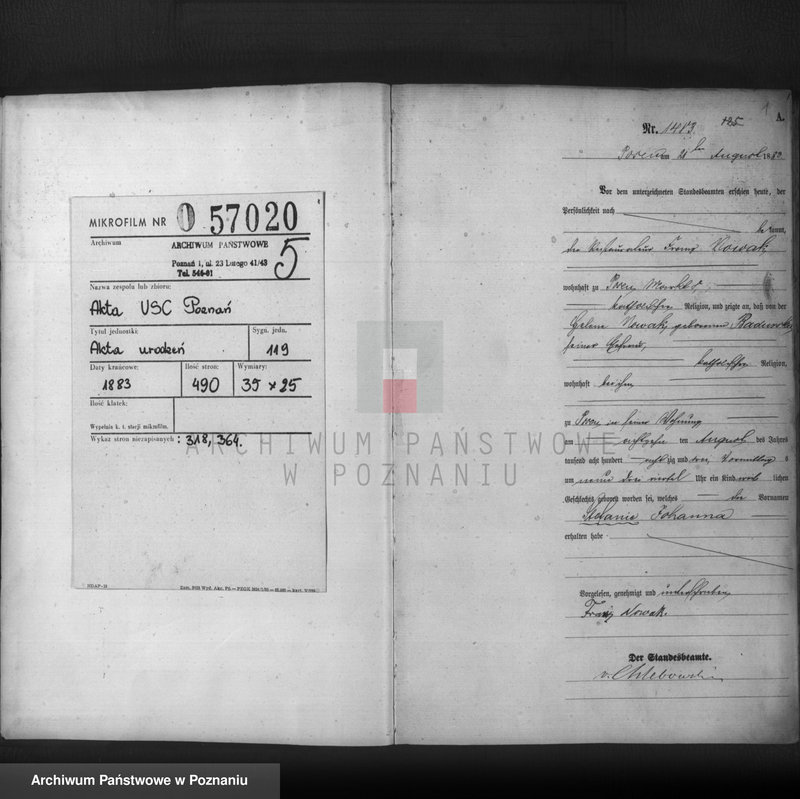 MIKROFILM NR 0 57020
Archiwum
ARCHIWUM PAŃSTWOWE
Poznań 1, ul. 23 Lutego 41/43
Tel. 546-01
5
Nazwa zespołu lub zbioru:
Akta USC Poznań
Tytuł jednostki:
Akta urodzeń
Sygn. jedn.
119
Daty krańcowe:
1883
Ilość stron:
490
Wymiary:
35 x 25
Ilość klatek:
Wypełnia k. t. stacji mikrofilm.
Wykaz stron niezapisanych: 318, 364.
A.
Nr. 1413.
Posen am 21 ten August 1883
Vor dem unterzeichneten Standesbeamten erschien heute, der
Persönlichkeit nach
bekannt,
der Restaurateur Franz Nowak
wohnhaft zu Posen
katholischer Religion, und zeigte an, daß von der
Nowak, geborenen
seiner Ehefrau,
katholischer Religion,
wohnhaft bei ihm
zu Posen in seiner Wohnung
am achtzehn ten August des Jahres
tausend acht hundert achtzig und drei, Vormittag s
um neun drei viertel Uhr ein Kind weib lichen
Geschlechts geboren worden sei, welches die Vornamen
Stefanie Johanna
erhalten habe
Vorgelesen, genehmigt und unterschrieben
Franz Nowak.
Der Standesbeamte.
v. Chlebowski
ARCHIWUM PAŃSTWOWE
W POZNANIU
Archiwum Państwowe w Poznaniu